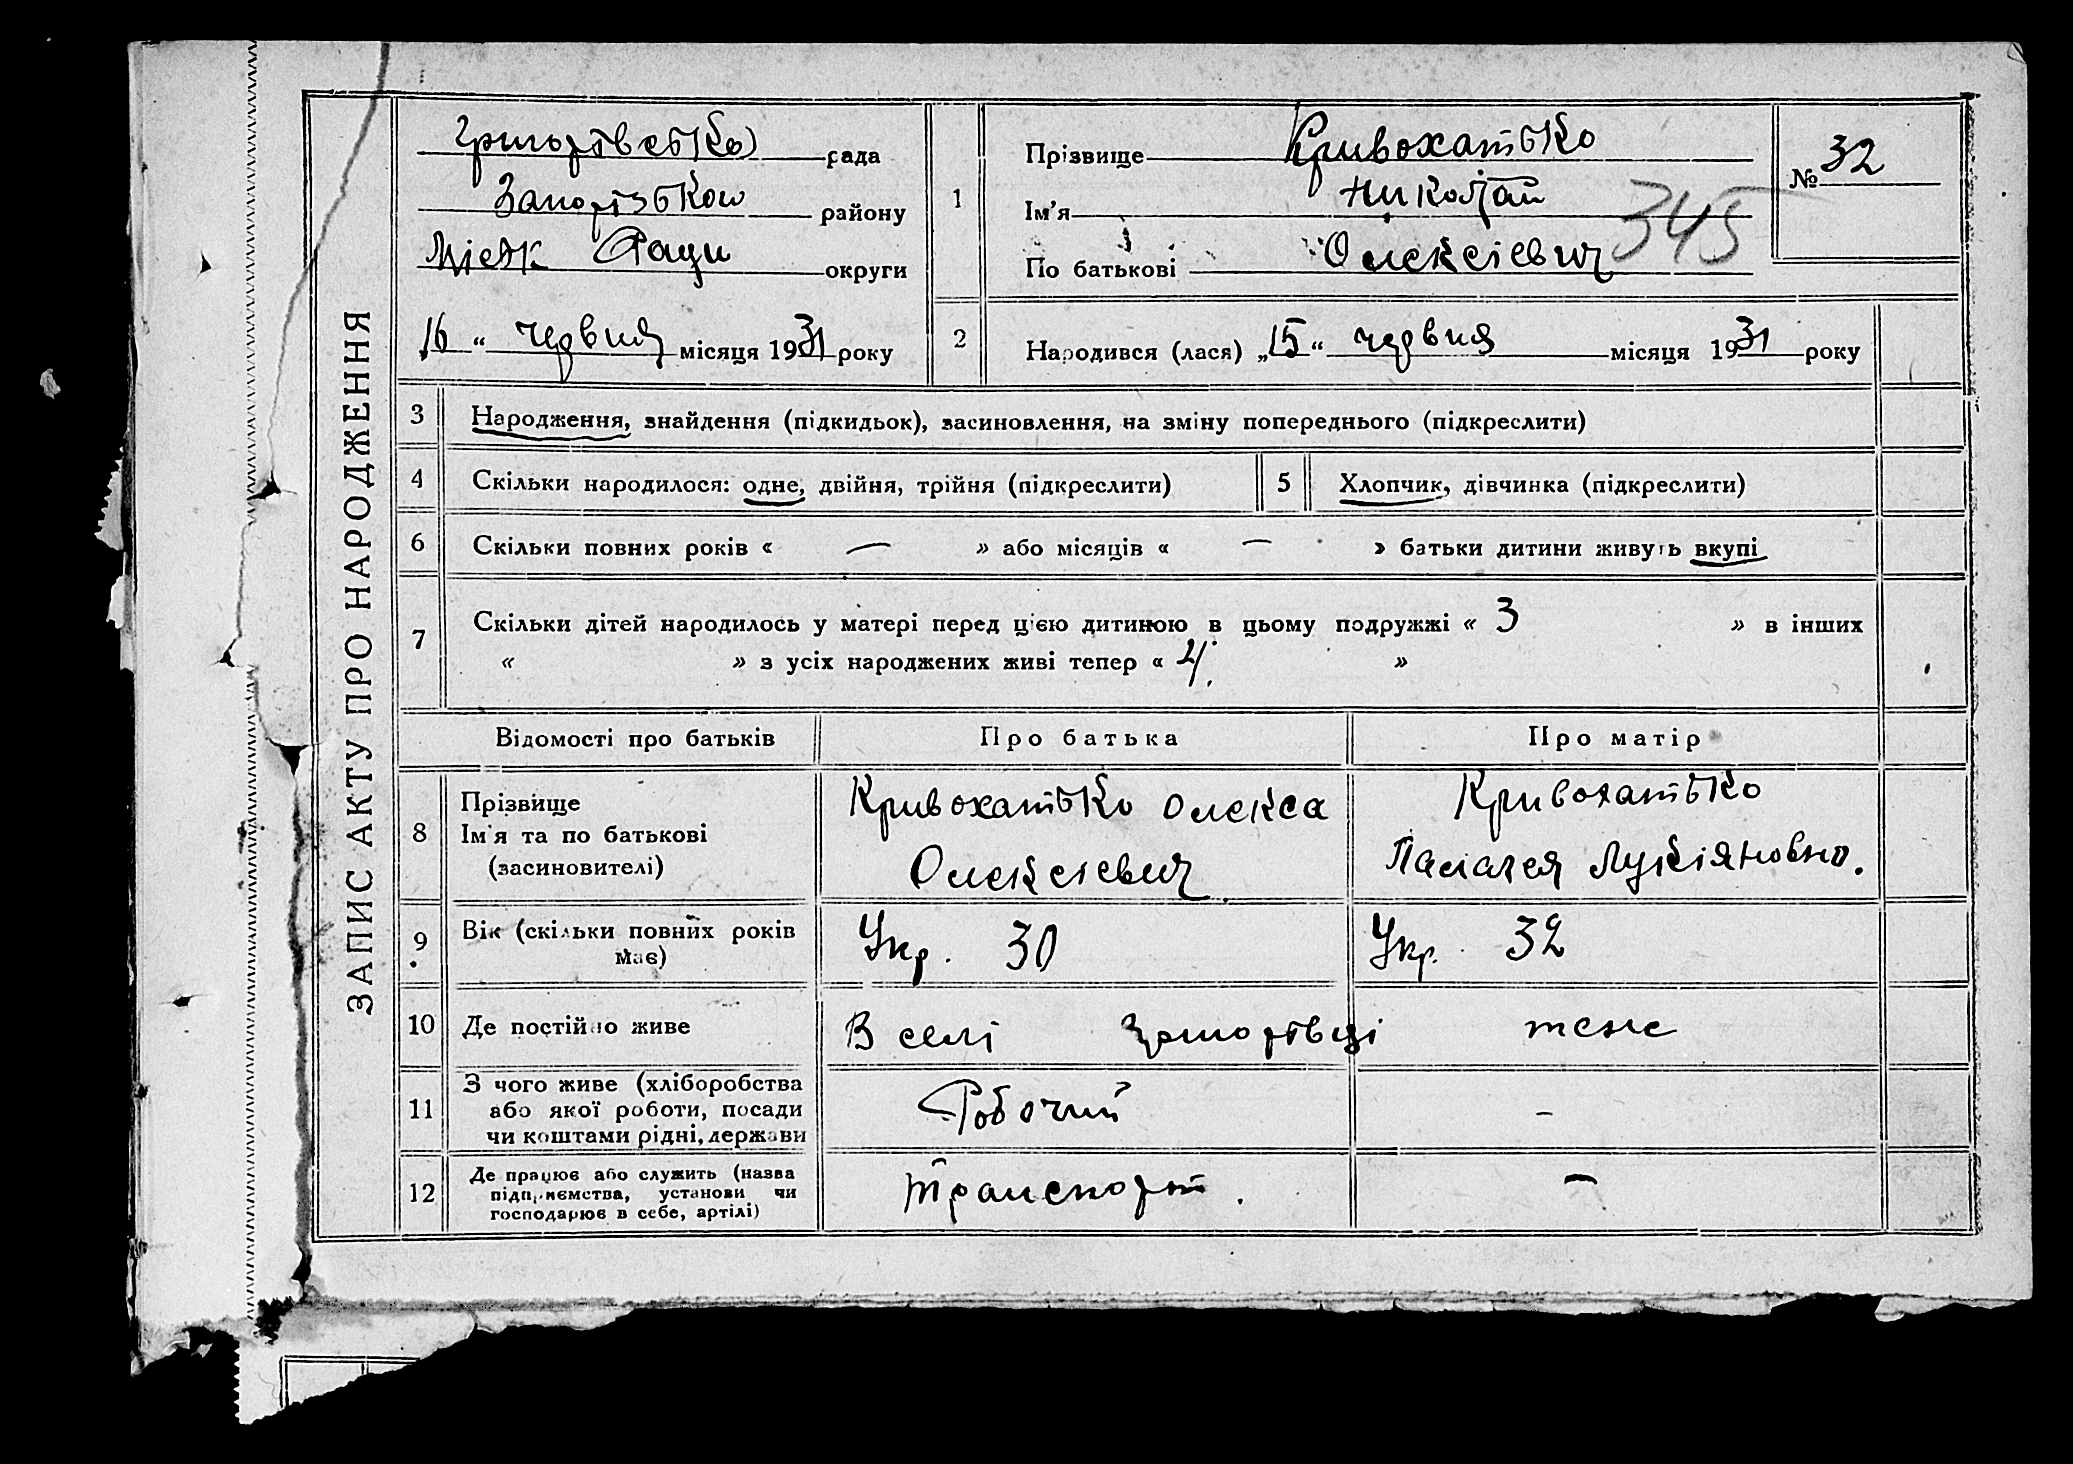 ЗАПИС АКТУ ПРО НАРОДЖЕННЯ
рада
Запорізького району
Міськ Ради округи
16 “ червня місяця 1931 року
1
Прізвище Кривохатько
Ім’я Николай
По батькові Олексієвич
№ 32
345
2
Народився (лася) „15“ червня місяця 1931 року
3 Народження, знайдення (підкидьок), засиновлення, на зміну попереднього (підкреслити)
4 Скільки народилося: одне, двійня, трійня (підкреслити) 5 Хлопчик, дівчинка (підкреслити)
6 Скільки повних років « — » або місяців « — » батьки дитини живуть вкупі
7 Скільки дітей народилось у матері перед цією дитиною в цьому подружжі « 3 » в інших
« » з усіх народжених живі тепер « 4. »
Відомості про батьків Про батька Про матір
8 Прізвище
Ім’я та по батькові
(засиновителі)
Кривохатько Олекса
Олексієвич
Кривохатько
9 Вік (скільки повних років
має)
Укр. 30
Укр. 32
10 Де постійно живе В селі теж
11 З чого живе (хліборобства
або якої роботи, посади
чи коштами рідні, держави
Робочий –
12 Де працює або служить (назва
підприємства, установи чи
господарює в себе, артілі)
Транспорт. –